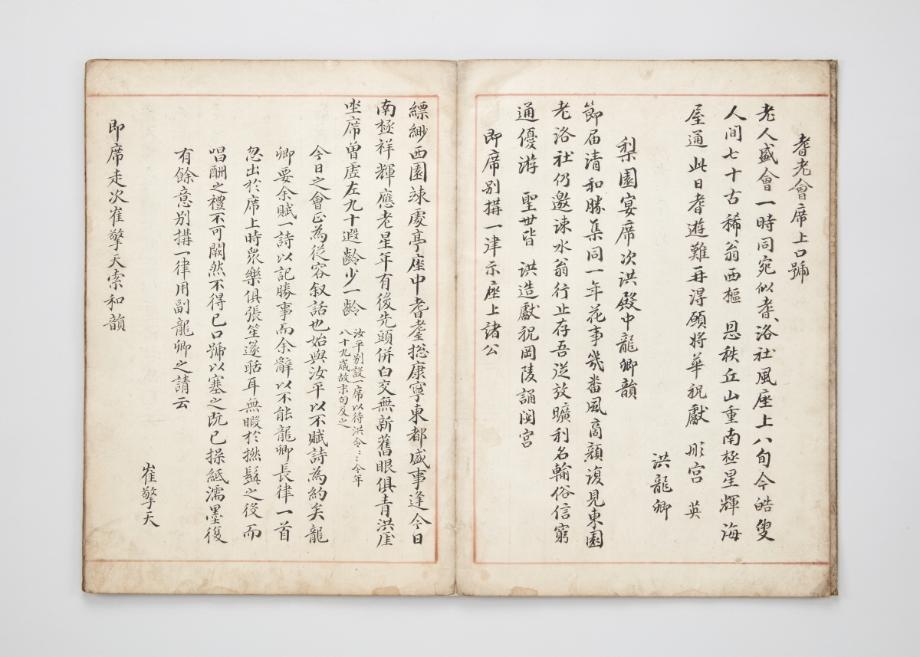 耆老會席上口號
老人盛會一時同宛似耆洛社風座上八旬今皓叟
人間七十古稀翁西樞 恩秩丘山重南極星輝海
屋通 此日耆遊難再得願將華祝獻 彤宮 英
洪龍卿
梨園宴席次洪殿中龍卿韻
節屆清和勝集同一年花事幾番風商顏復見東園
老洛社仍邀涑水翁行止存吾從放曠利名輸俗信窮
通優游 聖世皆 洪造獻祝岡陵誦閟宮
即席別搆一律示座上諸公
縹緲西園竦處亭座中耆耋摠康寧東都盛事逢今日
南極祥輝應老星年有後先頭併白交無新舊眼俱青洪厓
坐席曾虛左九十遐齡少一齡
汝平別設一席以待洪令⋯今年
八十九歲故末句及之
今日之會正為從容叙話也始與汝平以不賦詩為約矣龍
卿要余賦一詩以記勝事而余辭以不能龍卿長律一首
忽出於席上時衆樂俱張笙篴聒耳無暇於撚鬚之後而
唱酬之禮不可闕然不得已口號以塞之旣已操紙濡墨復
有餘意別搆一律用副龍卿之請云
崔擎天
即席走次崔擎天索和韻